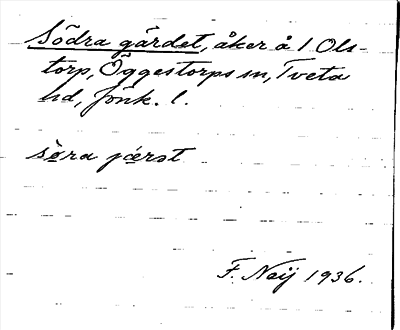 Södra gärdet, åker å 1 Ols-
torp, Öggestorps sn, Tveta
hd, Jönk. l.
söra jærst
F. Neij 1936.